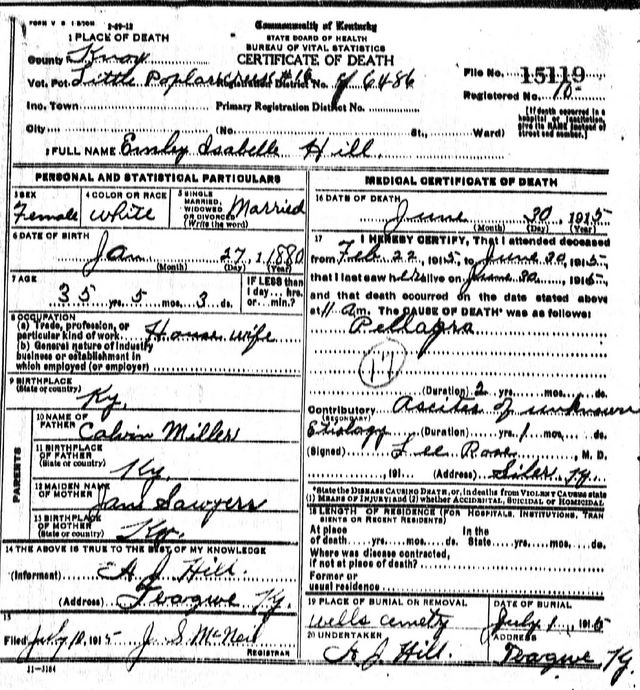 FORM V S 1 2-29-12
Commonwealth of Kentucky
STATE BOARD OF HEALTH
BUREAU OF VITAL STATISTICS
CERTIFICATE OF DEATH
1 PLACE OF DEATH
County Knox
Vot. Pct. Little Poplar Registration District No. 6486
File No. 15119
Registered No. 10
Inc. Town Primary Registration District No.
(If death occurred in a hospital or institution, give its NAME instead of street and number.)
City (No. St., Ward)
2 FULL NAME Emsly Isabelle Hill.
PERSONAL AND STATISTICAL PARTICULARS
3 SEX Female
4 COLOR OR RACE White
5 SINGLE MARRIED, WIDOWED OR DIVORCED (Write the word) Married
6 DATE OF BIRTH
Jan 27, 1880
(Month) (Day) (Year)
7 AGE
35 yrs. 5 mos. 3 ds.
IF LESS than 1 day... hrs. or... min.?
8 OCCUPATION
(a) Trade, profession, or particular kind of work House wife
(b) General nature of industry business or establishment in which employed (or employer)
9 BIRTHPLACE
(State or country) Ky.
PARENTS
10 NAME OF FATHER Calvin Miller
11 BIRTHPLACE OF FATHER (State or country) Ky
12 MAIDEN NAME OF MOTHER Jane Sawyers
13 BIRTHPLACE OF MOTHER (State or country) Ky.
14 THE ABOVE IS TRUE TO THE BEST OF MY KNOWLEDGE
(Informant) A J Hill.
(Address) Teague Ky.
15
Filed July 10, 1915 J. S. McNeil
REGISTRAR
11-3184
MEDICAL CERTIFICATE OF DEATH
16 DATE OF DEATH
June 30 1915
(Month) (Day) (Year)
17 I HEREBY CERTIFY, That I attended deceased
from Feb 22, 1915, to June 30, 1915,
that I last saw her alive on June 30, 1915,
and that death occurred on the date stated above
at 11 am. The CAUSE OF DEATH* was as follows:
Pellagra
(17)
(Duration) 2 yrs. mos. ds.
Contributory Ascites of unknown
(SECONDARY)
Etiology (Duration) yrs. 1 mos. ds.
(Signed) Lee Rose, M. D.
, 191 (Address) Siler Ky
*State the DISEASE CAUSING DEATH, or, in deaths from VIOLENT CAUSES state (1) MEANS OF INJURY; and (2) whether ACCIDENTAL, SUICIDAL or HOMICIDAL
18 LENGTH OF RESIDENCE (FOR HOSPITALS, INSTITUTIONS, TRANSIENTS OR RECENT RESIDENTS)
At place of death yrs. mos. ds. In the State yrs. mos. ds.
Where was disease contracted, if not at place of death?
Former or usual residence
19 PLACE OF BURIAL OR REMOVAL
Wells cemetry
DATE OF BURIAL
July 1, 1915
20 UNDERTAKER
A J Hill.
ADDRESS
Teague Ky